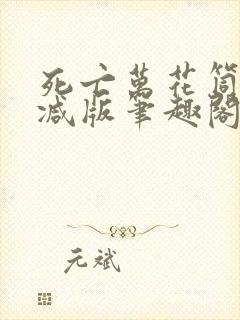 死亡萬花筒
减版筆趣閣
元斌